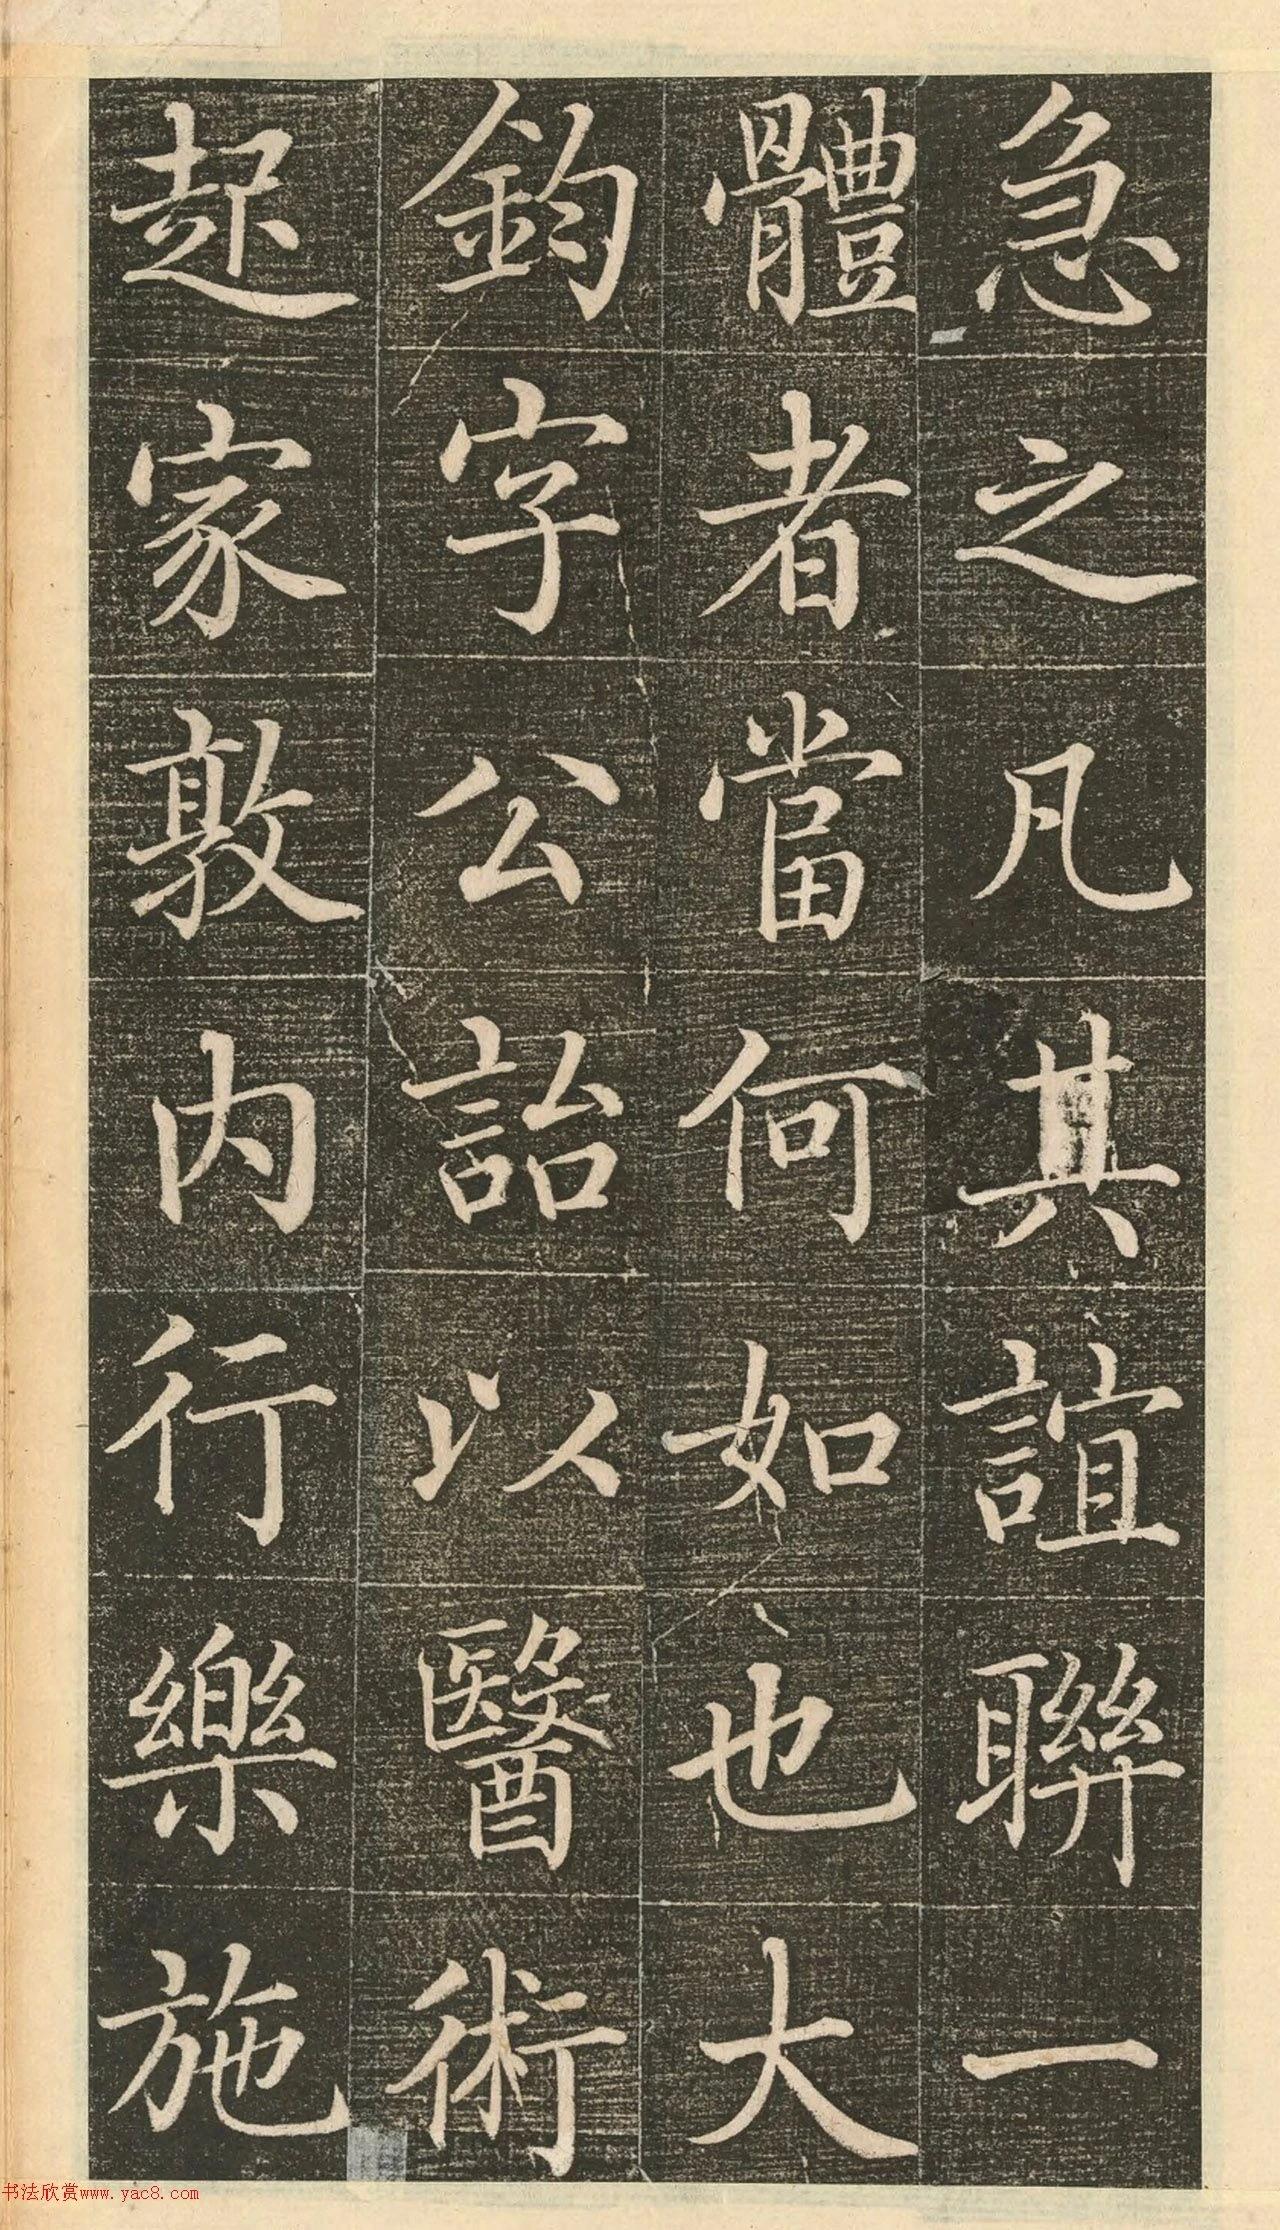 急之凡其誼聯一
體者當何如也大
鈞字公詒以醫術
起家敦內行樂施
书法欣赏www.yac8.com